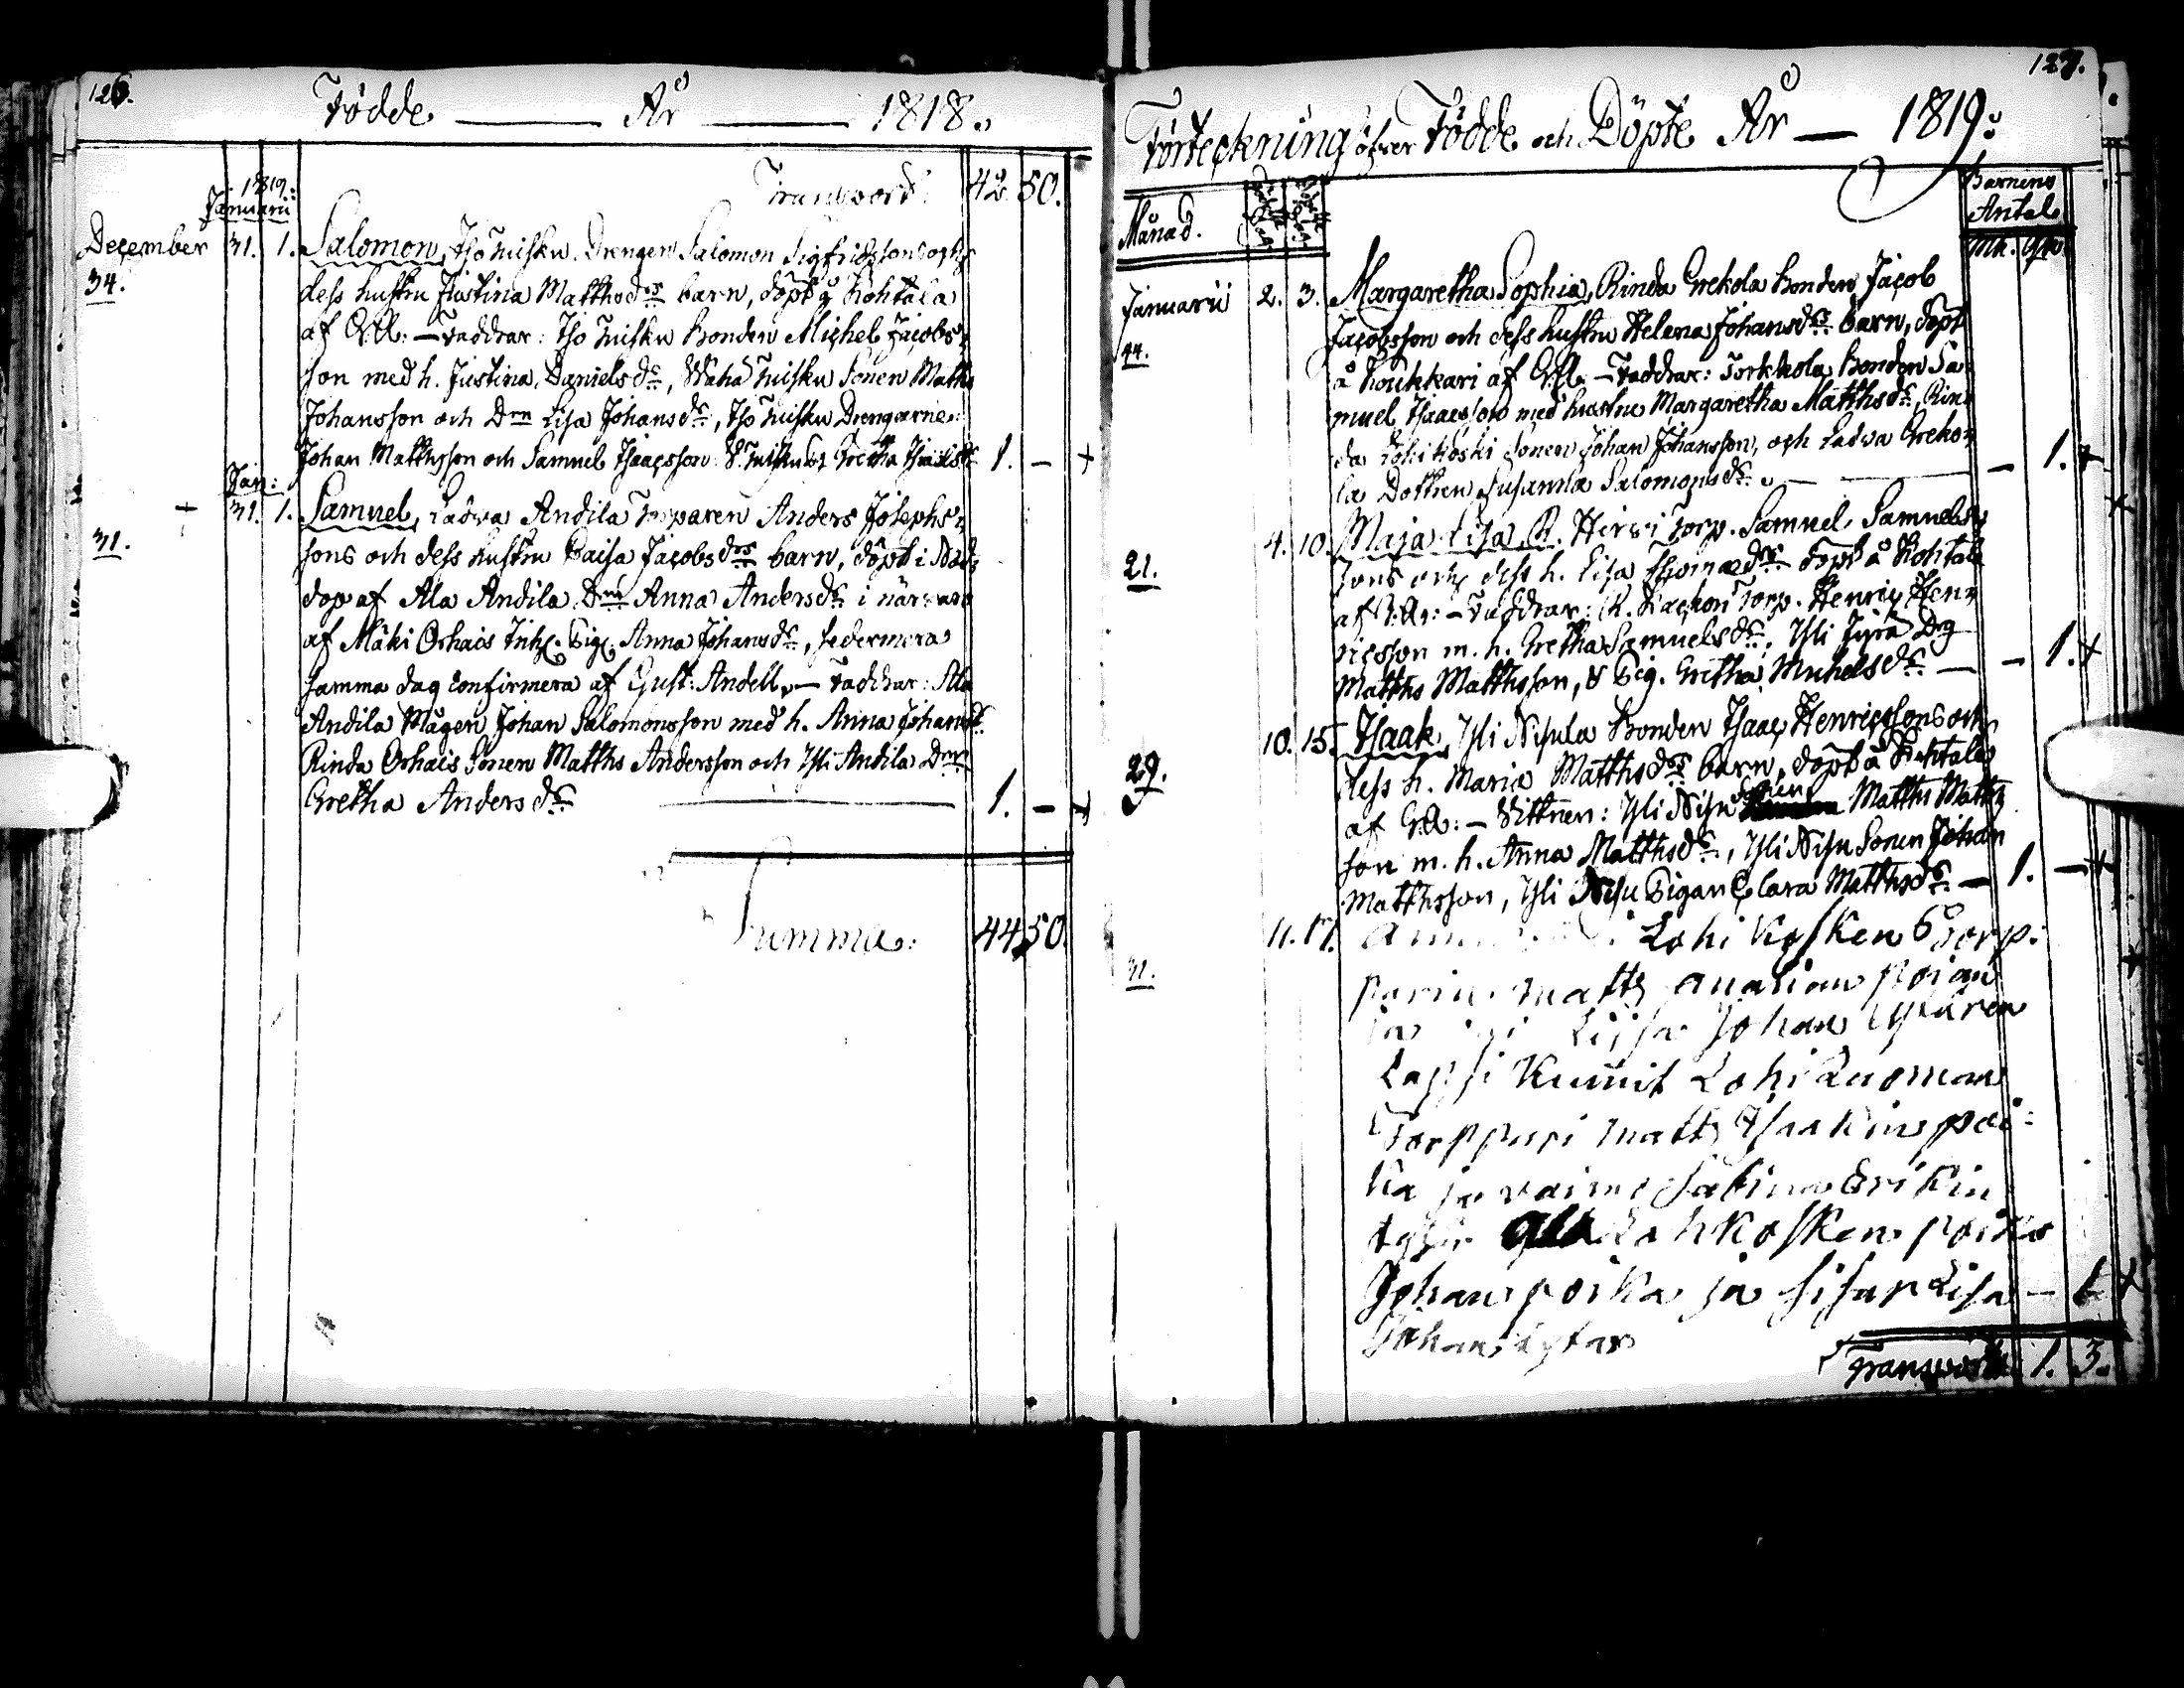 126.
Födde — År — 1818.
Transport 42. 50.
1819:
Januarii
December 31. 1. Salomon, Iso Nisku Drengen Salomon Sigfridssons och
34.
dess hustru Justina Matthsdrs barn, döpt å Kohtala
af C.R: — Faddrar: Iso Nisku Bonden Michel Jacobs-
son med h. Justina Danielsdr, Wäha Nisku Sonen Matths
Johansson och Drn Lisa Johansdr, Iso Nisku Drengarne
Johan Matthsson och Samuel Isaacsson 1. — +
Jan:
+ 31. 1. Samuel, Ladva Andila Torparen Anders Josephs-
31.
sons och dess hustru Caisa Jacobsdrs barn, döpt i Nöd-
dop af Ala Andila Drn Anna Andersdr i närvaro
af Mäki Orhais Inh. Pig. Anna Johansdr, sedermera
samma dag confirmera af Gust: Andell. — Faddrar: Ala
Andila Mågen Johan Salomonsson med h. Anna Johansdr
Rinda Orhais Sonen Matths Andersson och Yli Andila Drn
Gretha Andersdr — 1. — +
Summa: 44 50.
127.
Förteckning öfver Födde och Döpte År — 1819:
Månad.
Barnens
Antal
Mk. Qk.
Januarii 2. 3. Margaretha Sophia, Rinda Grekola Bonden Jacob
44.
Jacobsson och dess hustru Helena Johansdrs barn, döpt
å Koukkari af C.R. — Faddrar: Torkkola Bonden Sa-
muel Isaacsson med hustru Margaretha Matthsdr, Rin-
da Lohikoski Sonen Johan Johansson, och Ladva Greko-
la Dottren Susanna Salomonsdr. — — 1. +
4. 10. Maja Lisa, R. Hirsi Torp. Samuel Samuels-
21.
sons och dess h. Lisa Thomædrs döpt å Kohtala
af C.R: — Faddrar: R. Torp. Henric Hen-
ricsson m. h. Gretha Samuelsdr, Yli Jyrä Drg
Matths Matthsson, & Pig. Gretha Michelsdr. — — 1. +
10. 15. Isaak, Yli Nisula Bonden Isaac Henricssons och
29.
dess h. Maria Matthsdrs barn, döpt å Kohtala
af C.R: — Vittnen: Yli Nisu Sonen Matths Matths-
son m. h. Anna Matthsdr, Yli Nisu Sonen Johan
Matthsson, Yli Nisu Pigan Clara Matthsdr — 1. — +
11. 17. Lohi Kosken Torp:
31.
parin matts poian
ja Lijsa Johan tytären
Lapsi Kumit Lohi Luoman
Torppari matts Isaakin poi-
ka ja vaimo Sabina Erikin
tytär Lohkosken poika
Johans poika ja sisar Lisa — 1. +
Johans tytär
Transport 1. 3.